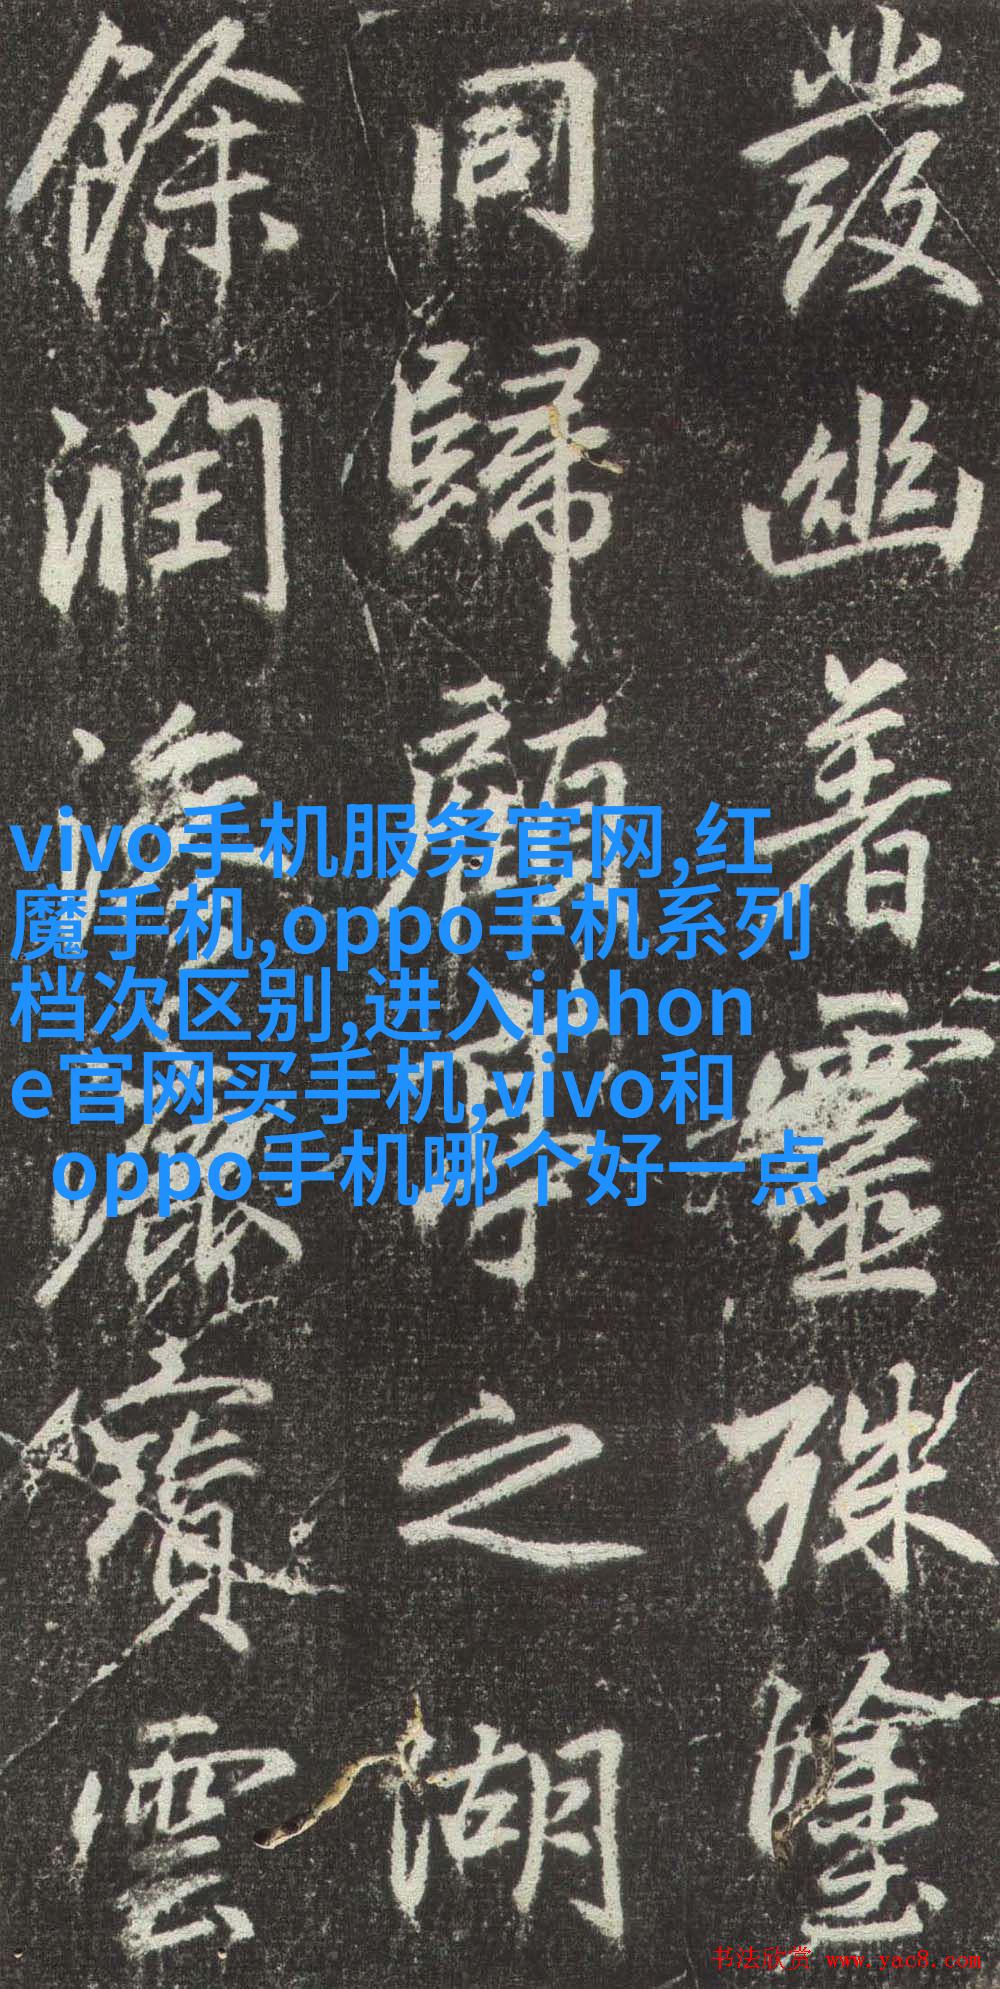 發幽著靈殊
同歸顧之湖
餘潤雲
vivo手机服务官网,红
魔手机,oppo手机系列
档次区别,进入iphon
e官网买手机,vivo和
oppo手机哪个好一点
书法欣赏 www.yac8.com